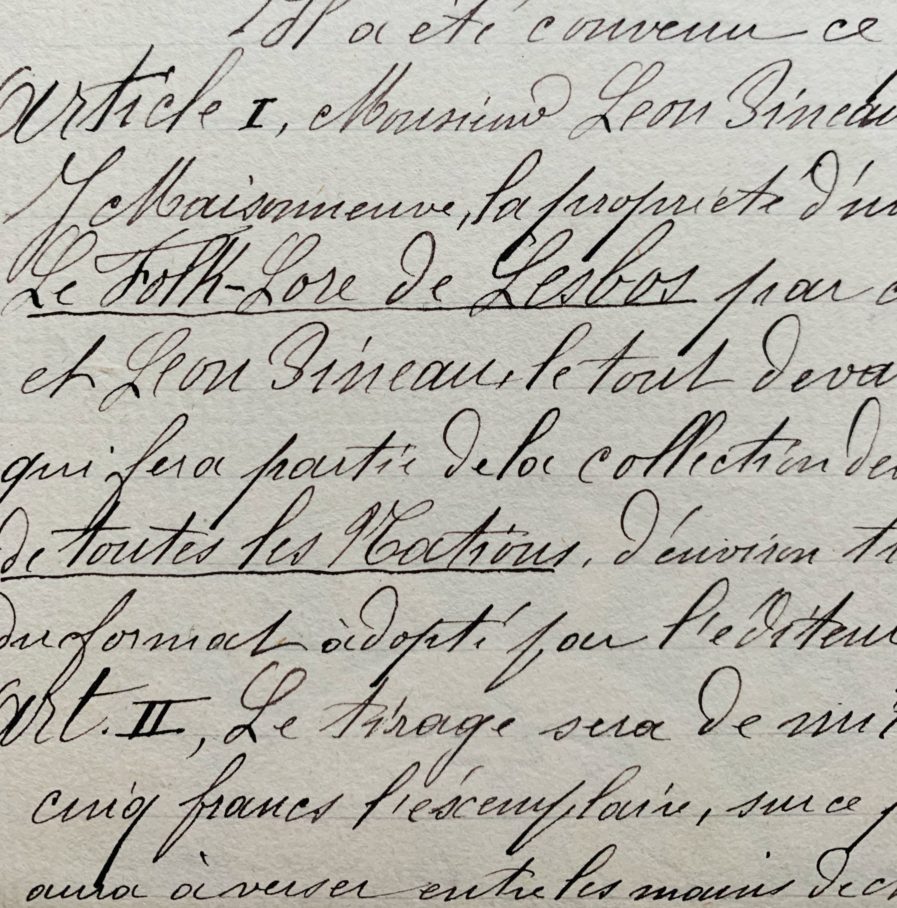 Il a été convenu ce
Article I, Monsieur Léon Pineau
J Maisonneuve, la propriété d'un
Le Folk-Lore de Lesbos par
et Léon Pineau, le tout deva
qui fera partie de la collection des
de toutes les Nations, d'environ tr
du format adopté par l'éditeur
Art. II, Le tirage sera de mil
cinq francs l'éxemplaire, sur ce p
aura à verser entre les mains de